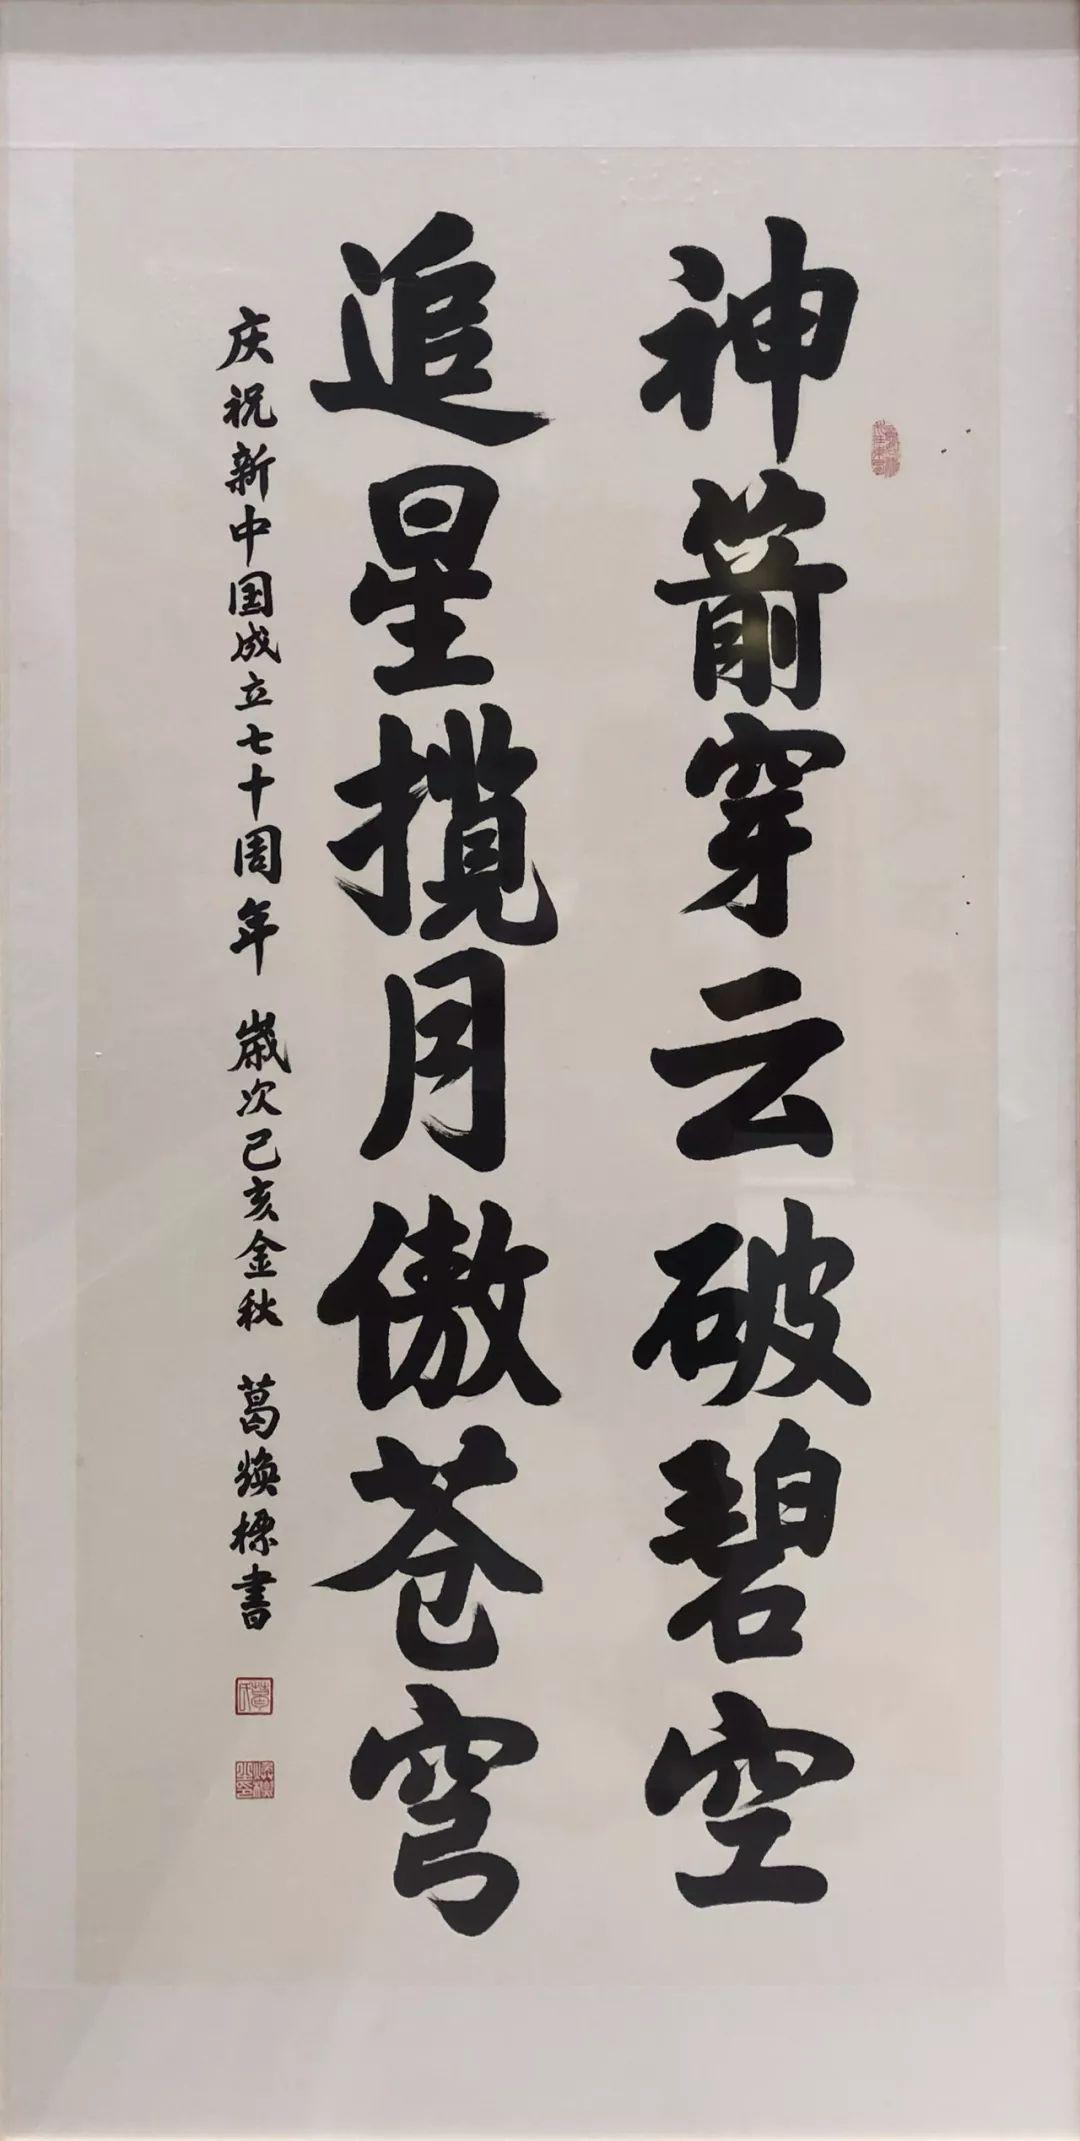 神箭穿云破碧空
追星揽月傲苍穹
庆祝新中国成立七十周年 歲次己亥金秋 葛焕標書